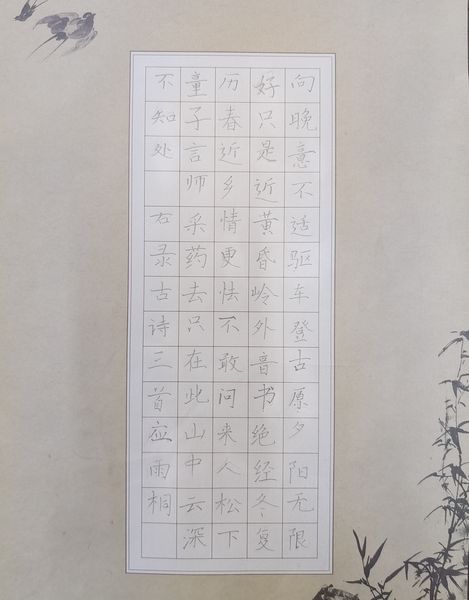 向晚意不适驱车登古原夕阳无限
好只是近黄昏岭外音书绝经冬复
历春近乡情更怯不敢问来人松下
童子言师采药去只在此山中云深
不知处 右录古诗三首应雨桐